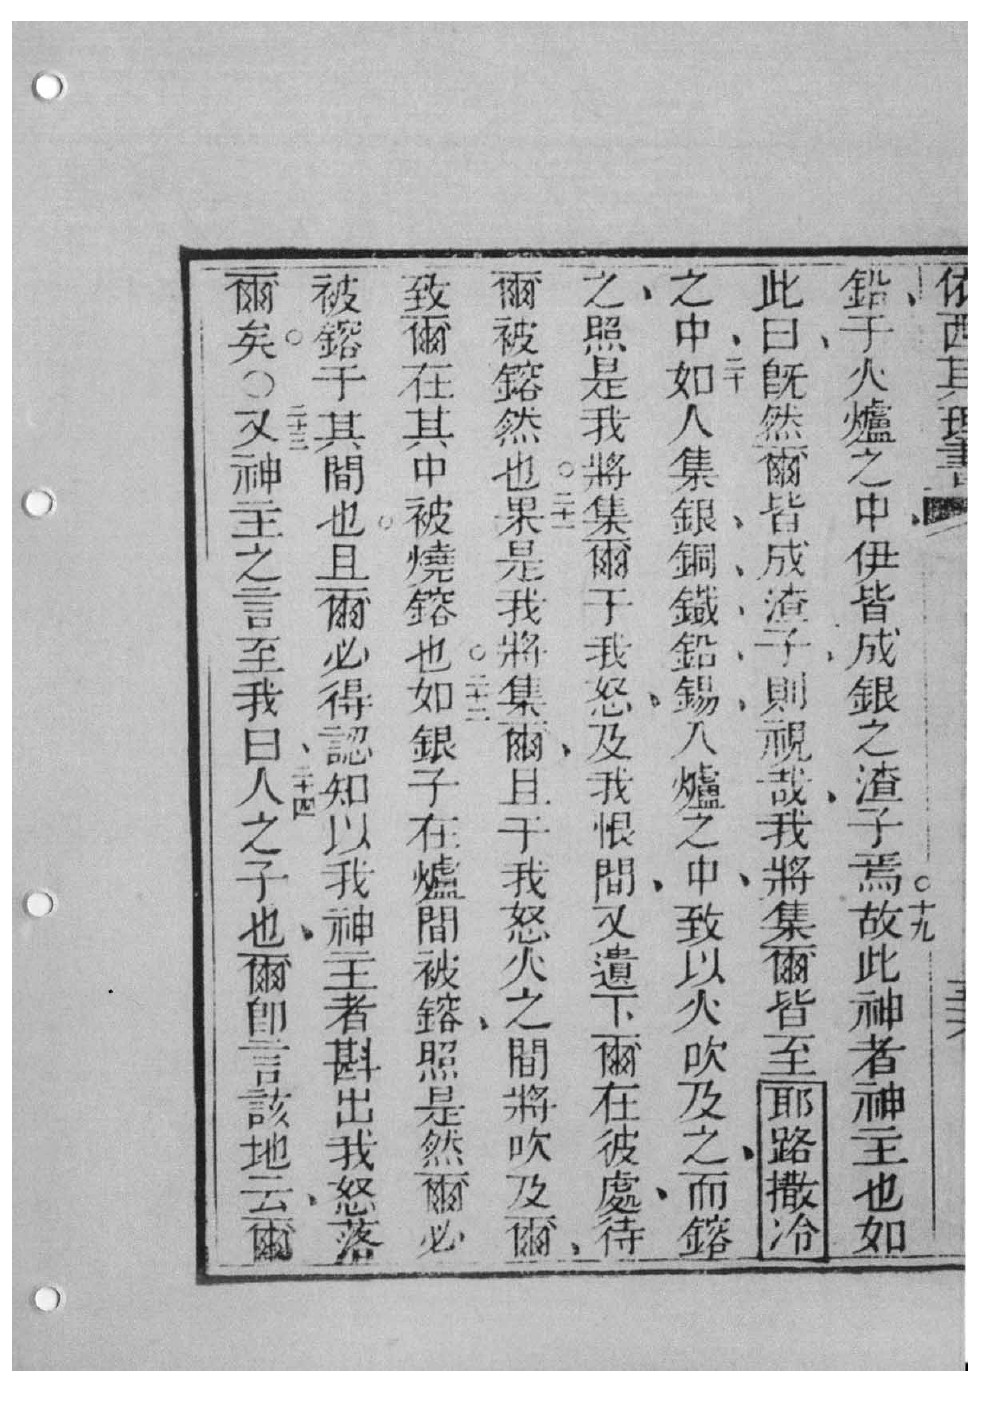 依西其理書
鉛、于火爐之中、伊皆成銀之渣子焉。十九故此神者神主也如
此曰、既然爾皆成渣子、則視哉、我將集爾皆至耶路撒冷
之中、二十如人集銀、銅、鐵、鉛、錫、入爐之中、致以火吹及之、而鎔
之、照是我將集爾于我怒、及我恨間、又遺下爾在彼處、待
爾被鎔然也。二十一果是我將集爾、且于我怒火之間將吹及爾、
致爾在其中被燒鎔也。二十二如銀子在爐間被鎔、照是然爾必
被鎔于其間也。且爾必得認知以我神主者斟出我怒落
爾矣。○二十三又神主之言至我曰、二十四人之子也、爾卽言該地云、爾